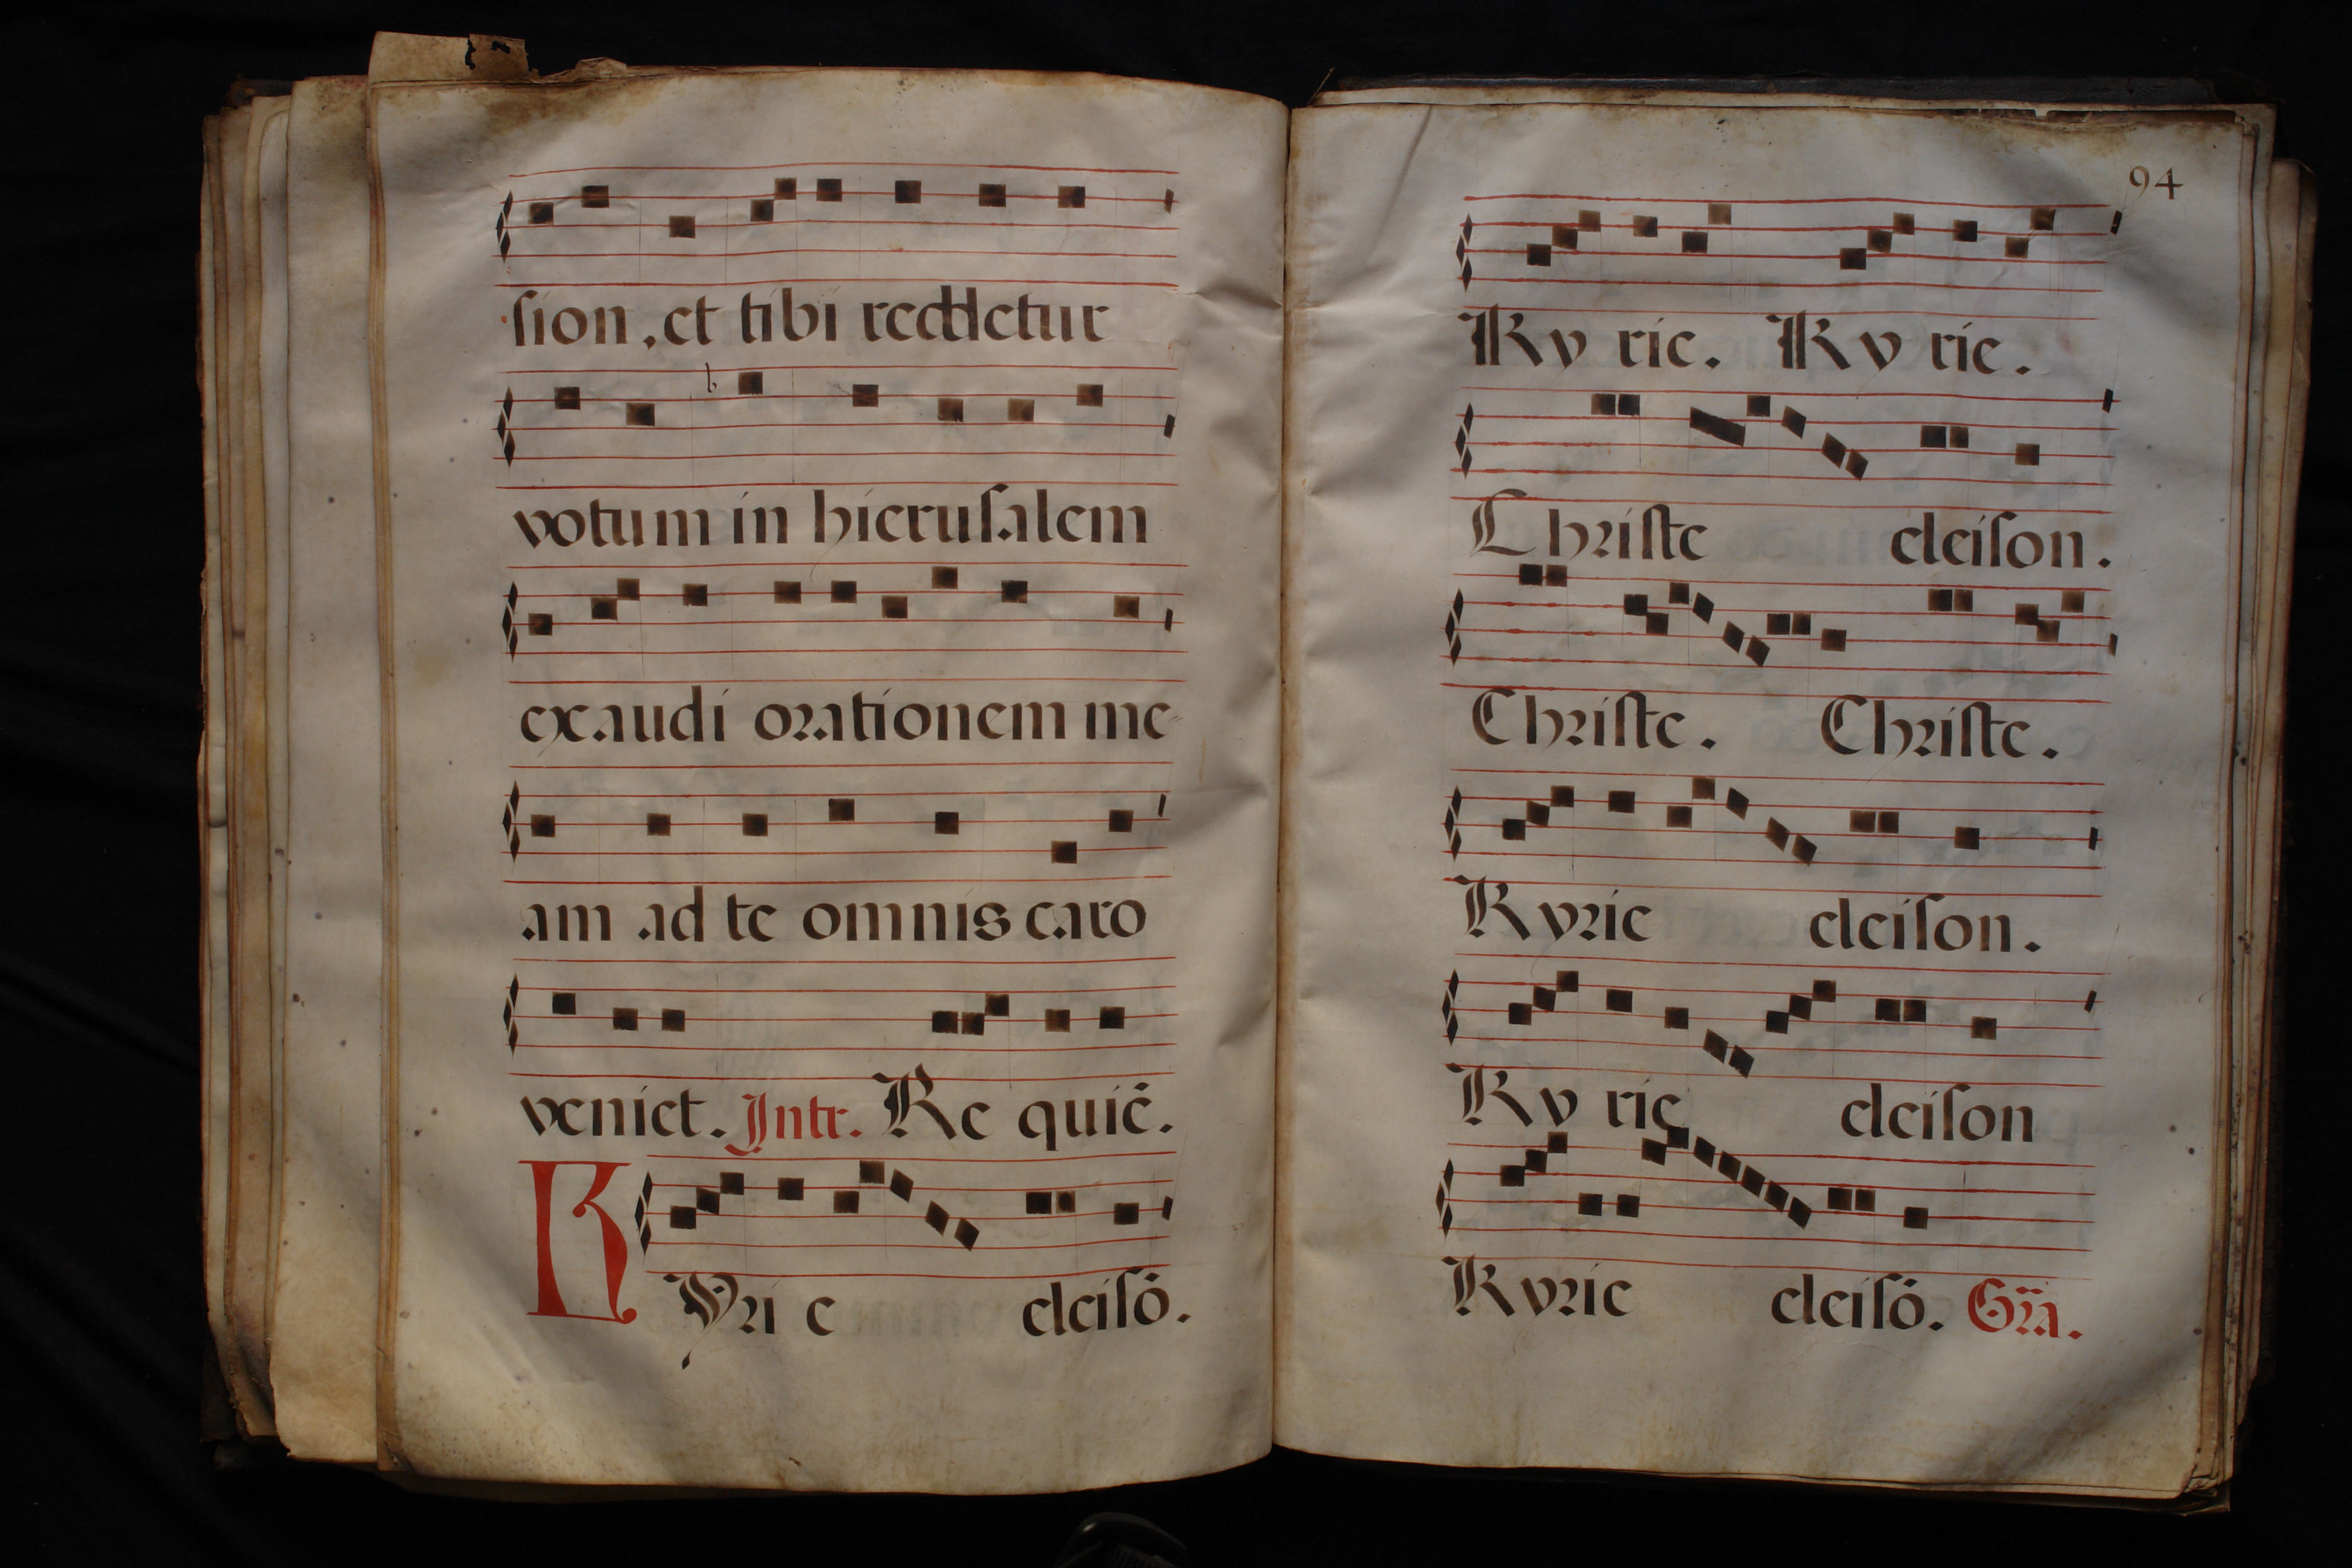 sion, et tibi reddetur
votum in hierusalem
exaudi orationem me-
am ad te omnis caro
veniet. Intr. Re quiē.
KYri e eleisō.
94
Ky rie. Ky rie.
Christe eleison.
Christe. Christe.
Kyrie eleison.
Ky rie eleison
Kyrie eleisō. Gra.